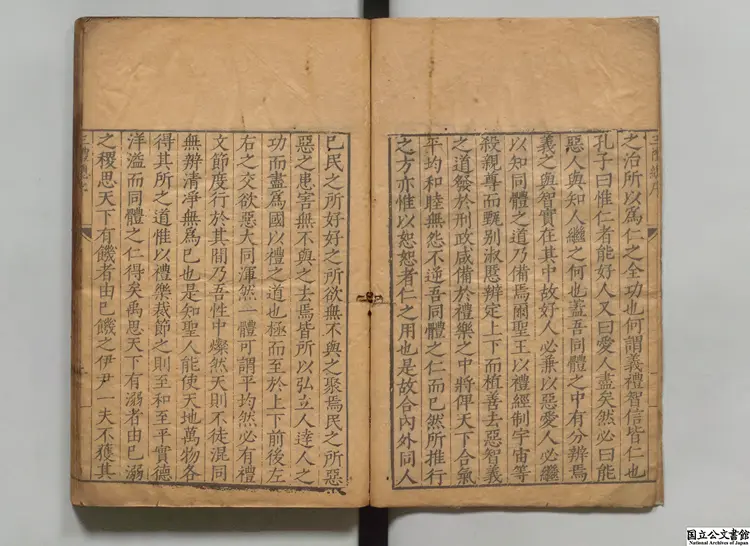 之治所以爲仁之全功也何謂義禮智信皆仁也
孔子曰惟仁者能好人又曰愛人盡矣然必曰能
惡人與知人繼之何也蓋吾同體之中有分辨焉
義之與智實在其中故好人必兼以惡愛人必繼
以知同體之道乃備焉爾聖王以禮經制宇宙等
殺親尊而甄别淑慝辨定上下而植善去惡智義
之道發於刑政咸備於禮樂之中將俾天下合氣
平均和睦無怨不逆吾同體之仁而已然所推行
之方亦惟以恕恕者仁之用也是故合內外同人
己民之所好好之所欲無不與之聚焉民之所惡
惡之患害無不與之去焉皆所以弘立人達人之
功而盡爲國以禮之道也極而至於上下前後左
右之交欲惡大同渾然一體可謂平均然必有禮
文節度行於其間乃吾性中燦然天則不徒混同
無辨清凈無爲已也是知聖人能使天地萬物各
得其所之道惟以禮樂裁節之則至和至平實德
洋溢而同體之仁得矣禹思天下有溺者由已溺
之稷思天下有饑者由已饑之伊尹一夫不獲其
国立公文書館
National Archives of Japan